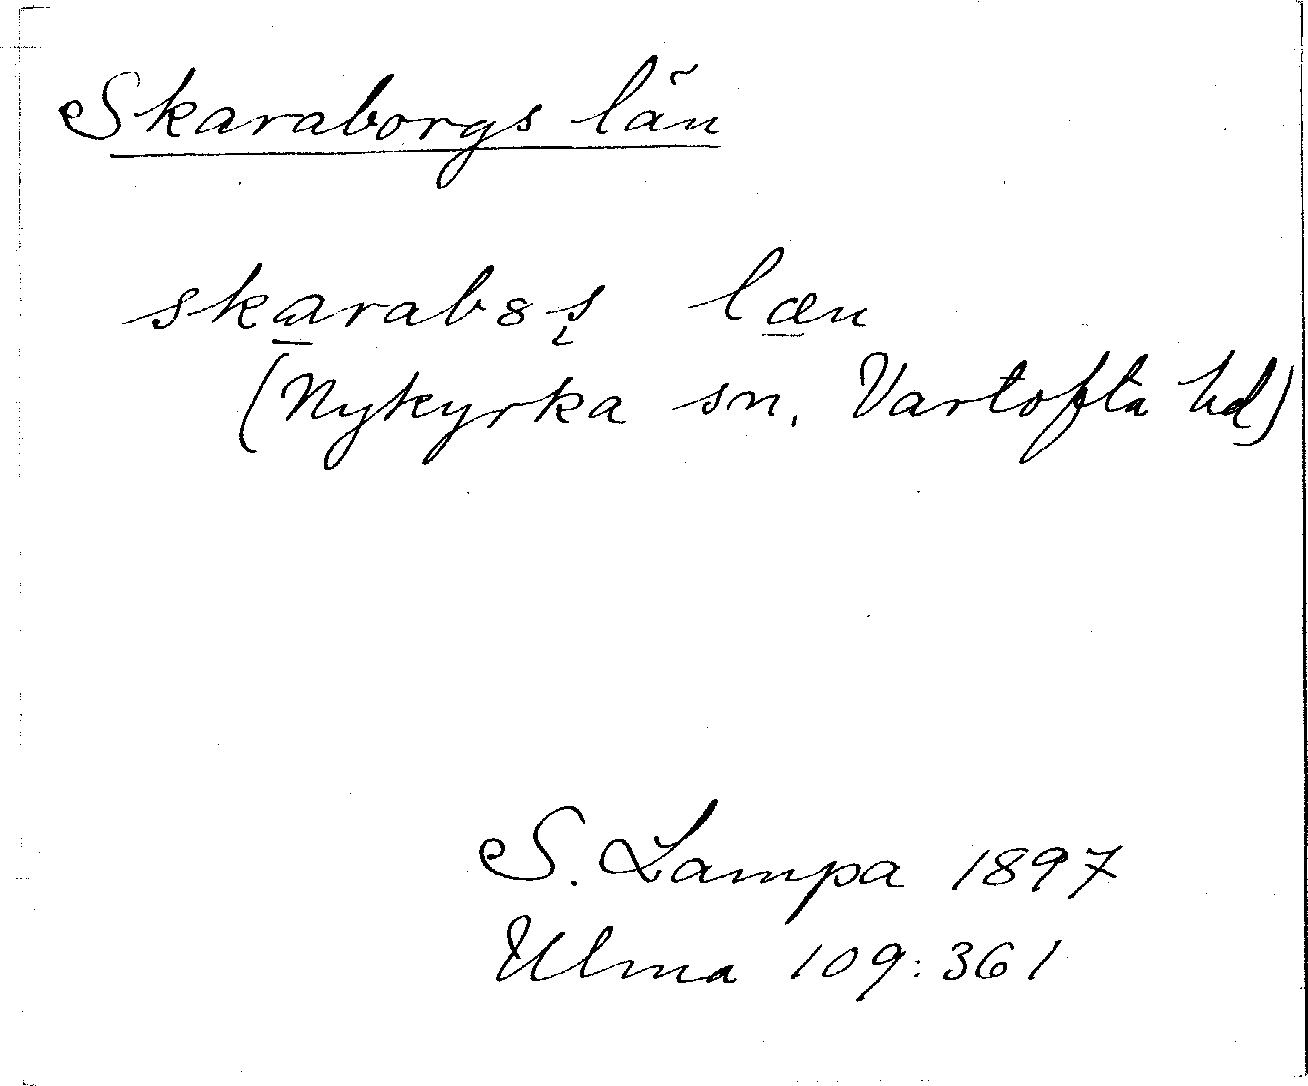 Skaraborgs län
skarab8s læn
(Nykyrka sn, Vartofta hd)
S. Lampa 1897
Ulma 109:361